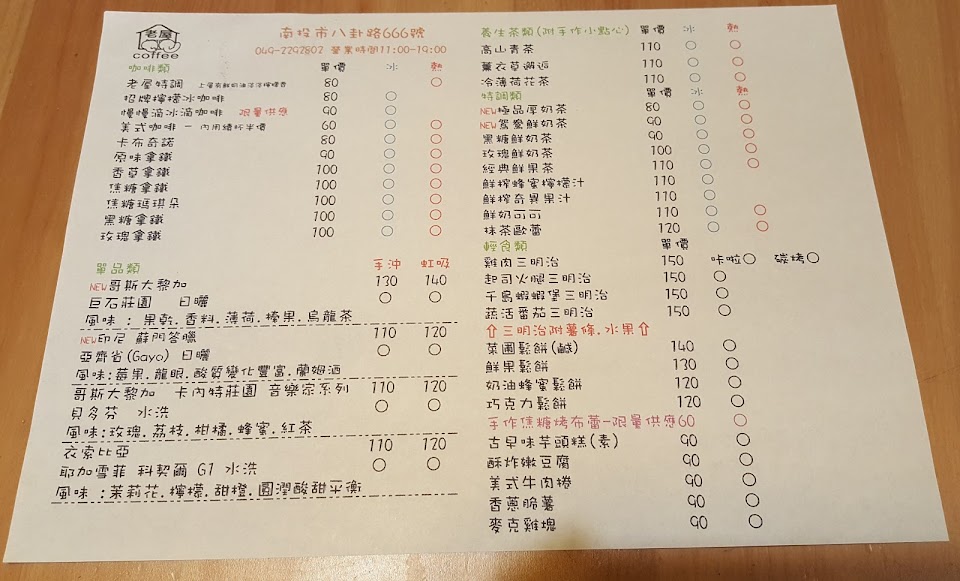 老屋
coffee
南投市八卦路666號
049-2292802 營業時間11:00-19:00
咖啡類 單價 冰 熱
老屋特調 80 ○
招牌檸檬冰咖啡 80 ○
慢慢滴冰滴咖啡 限量供應 90 ○
美式咖啡 - 內用續杯半價 60 ○ ○
卡布奇諾 80 ○ ○
原味拿鐵 90 ○ ○
香草拿鐵 100 ○ ○
焦糖拿鐵 100 ○ ○
焦糖瑪琪朵 100 ○ ○
黑糖拿鐵 100 ○ ○
玫瑰拿鐵 100 ○ ○
單品類 手沖 虹吸
NEW哥斯大黎加 130 140
巨石莊園 日曬 ○ ○
風味：果乾.香料.薄荷.榛果.烏龍茶
NEW印尼 蘇門答臘 110 120
亞齊省(Gayo) 日曬 ○ ○
風味:莓果.龍眼.酸質變化豐富.蘭姆酒
哥斯大黎加 卡內特莊園 音樂家系列 110 120
貝多芬 水洗 ○ ○
風味:玫瑰.荔枝.柑橘.蜂蜜.紅茶
衣索比亞 110 120
耶加雪菲 科契爾 G1 水洗 ○ ○
風味：茉莉花.檸檬.甜橙.圓潤酸甜平衡
養生茶類(附手作小點心) 單價 冰 熱
高山青茶 110 ○ ○
薰衣草邂逅 110 ○ ○
冷薄荷花茶 110 ○ ○
特調類 單價 冰 熱
NEW極品厚奶茶 80 ○ ○
NEW鴛鴦鮮奶茶 90 ○ ○
黑糖鮮奶茶 90 ○ ○
玫瑰鮮奶茶 100 ○ ○
經典鮮果茶 110 ○ ○
鮮榨蜂蜜檸檬汁 110 ○
鮮榨奇異果汁 110 ○
鮮奶可可 110 ○ ○
抹茶歐蕾 120 ○ ○
輕食類 單價
雞肉三明治 150 咔啦○ 碳烤○
起司火腿三明治 150 ○
千島蝦蝦堡三明治 150 ○
蔬活番茄三明治 150 ○
⇧三明治附薯條.水果⇧
菜圃鬆餅(鹹) 140 ○
鮮果鬆餅 130 ○
奶油蜂蜜鬆餅 120 ○
巧克力鬆餅 120 ○
手作焦糖烤布蕾-限量供應60 ○
古早味芋頭糕(素) 90 ○
酥炸嫩豆腐 90 ○
美式牛肉捲 90 ○
香蔥脆薯 90 ○
麥克雞塊 90 ○